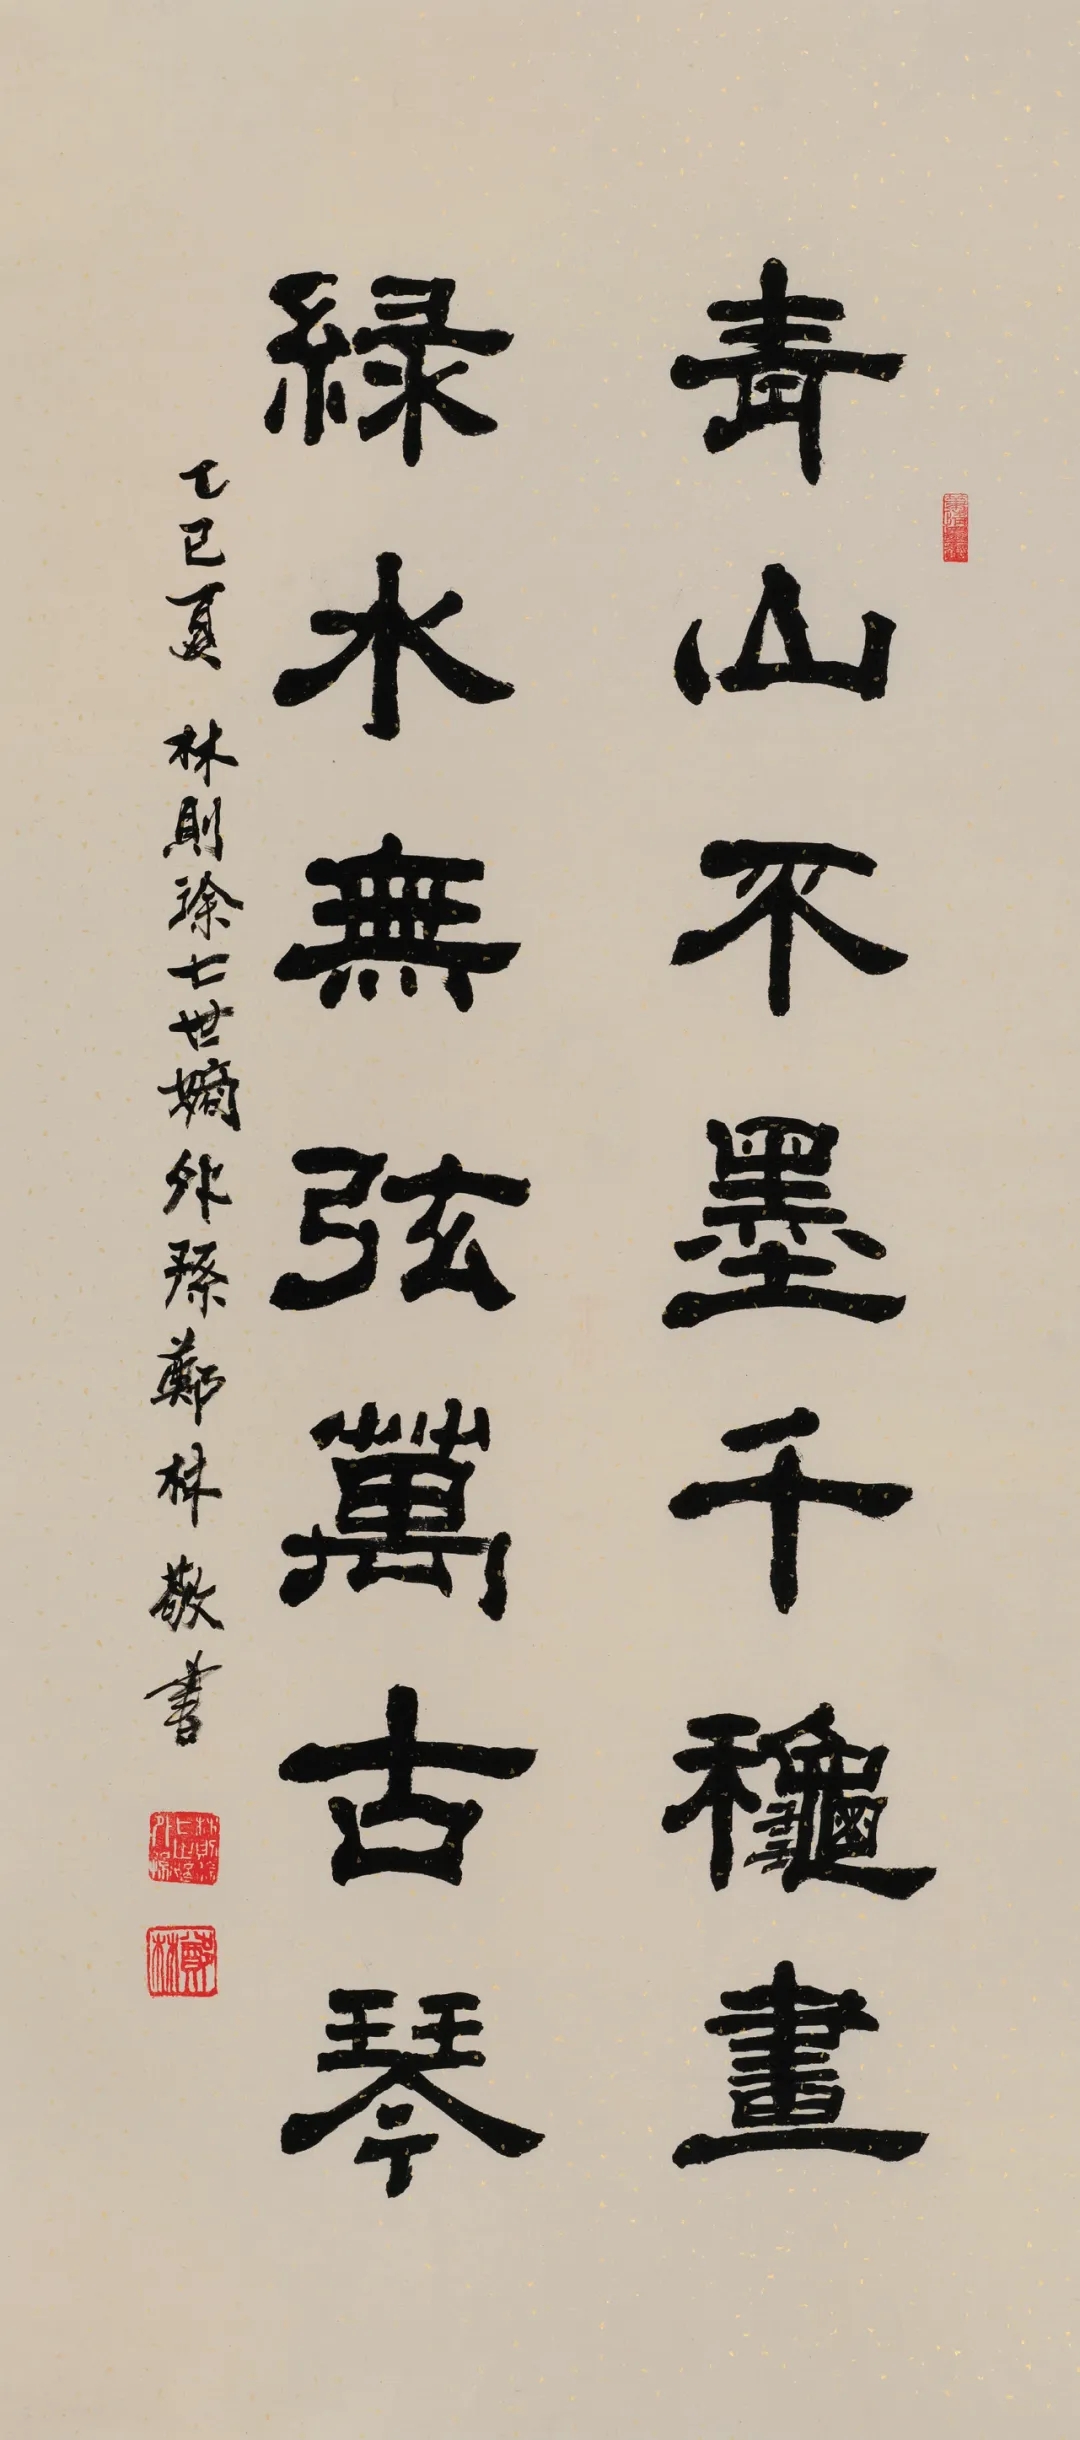 青山不墨千穐畫
緑水無弦萬古琴
乙巳夏 林則徐七世嫡外孫鄭林敬書
鄭林